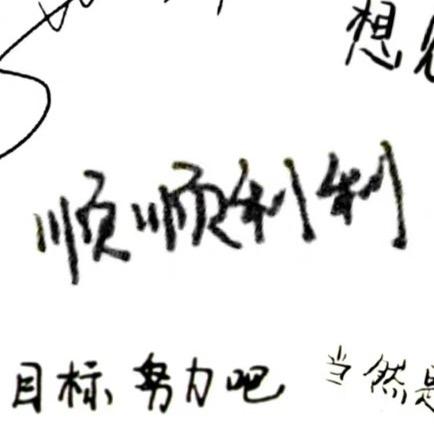 想
顺顺利利
目标,努力吧 当然是